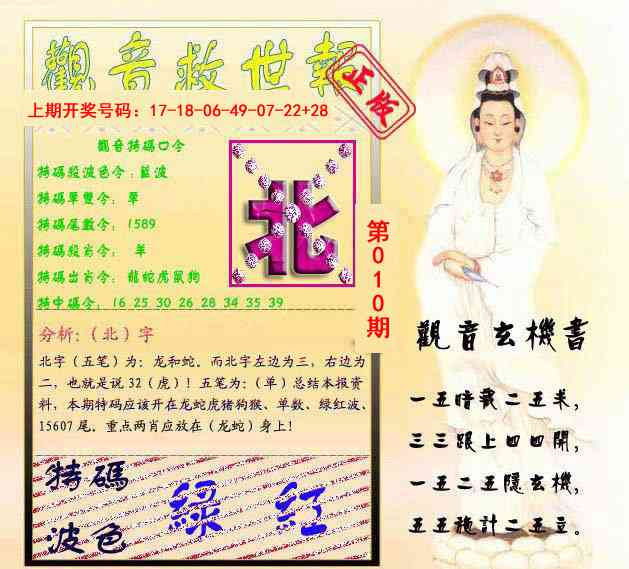 觀音救世報
正版
上期开奖号码：17-18-06-49-07-22+28
觀音特碼口令
特碼段波色令：藍波
特碼單雙令： 單
特碼尾數令： 1589
特碼段肖令： 單
特碼出肖令： 龍蛇虎鼠狗
特中碼令： 16 25 30 26 28 34 35 39
北
第010期
分析：（北）字
北字（五笔）为：龙和蛇。而北字左边为三，右边为
二，也就是说 32（虎）！五笔为：（单）总结本报资
料，本期特码应该开在龙蛇虎猪狗猴、单数、绿红波、
15607 尾。重点两肖应放在（龙蛇）身上！
特碼
波色
綠 紅
觀音玄機書
一五暗藏二五来，
三三跟上四四開，
一五二五隱玄機，
五五施計二五立。